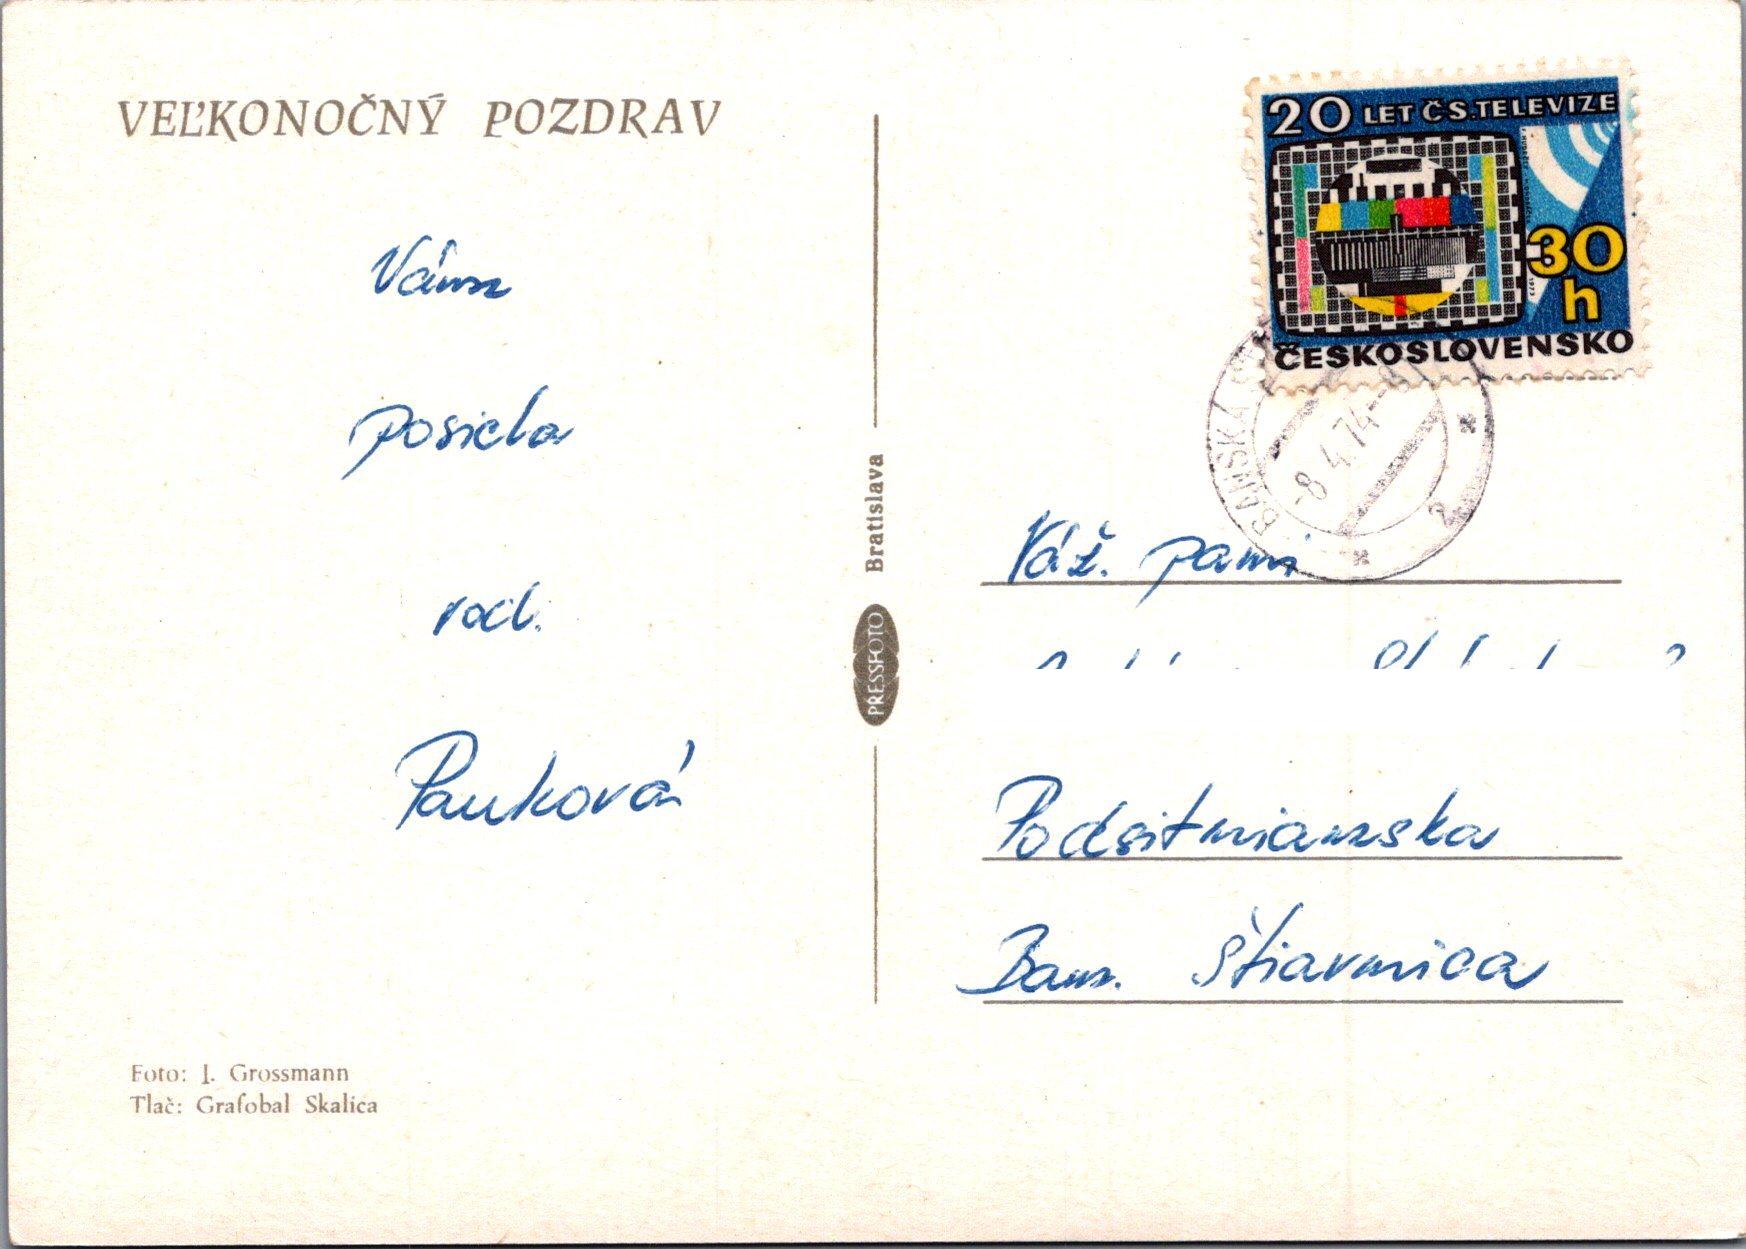 VEĽKONOČNÝ POZDRAV
Vám
posiela
rod.
Pauková
Foto: J. Grossmann
Tlač: Grafobal Skalica
Bratislava
PRESSFOTO
20 LET ČS. TELEVIZE
30
h
1973
ČESKOSLOVENSKO
BANSKÁ
-8.4.74
2
Váž. pani
Podsitnianska
Ban. Štiavnica